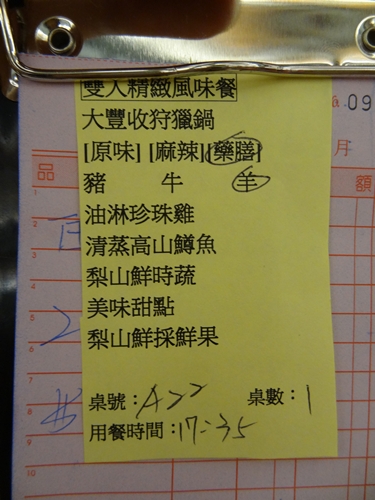 雙人精緻風味餐
大豐收狩獵鍋
[原味] [麻辣] [藥膳]
豬 牛 羊
油淋珍珠雞
清蒸高山鱒魚
梨山鮮時蔬
美味甜點
梨山鮮採鮮果
桌號：A22 桌數：1
用餐時間：17:35
09
月
品
額
1
2
3
4
5
6
7
8
9
10